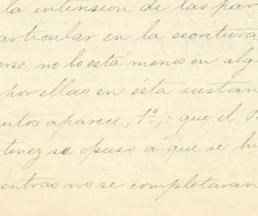 la intension de las par
articular en la escritura
erse, no lo está menos en alg
por ellas en ésta sustan
utos aparece, 1º,: que el
tenez se opuso a que se hi
entras no se completaran